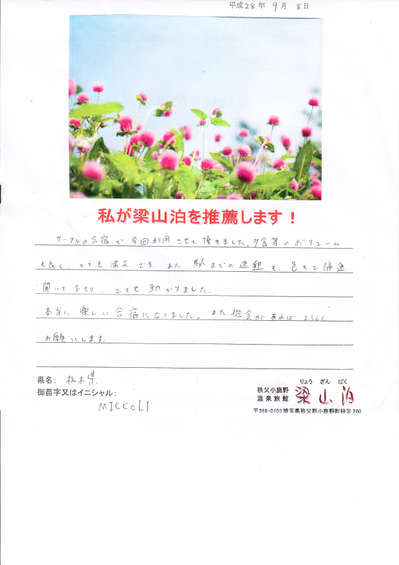 平成28年 9月 8日
私が梁山泊を推薦します！
サークルの合宿で今回利用させて頂きました。夕食等のボリューム
も良く、とても満足です。また 駅までの送迎も
聞いて下さり、とても助かりました。
本当に楽しい合宿になりました。また機会があればよろしく
お願いします。
県名： 栃木県
御苗字又はイニシャル：
MICCOLI
秩父小鹿野
温泉旅館
りょう ざん ぱく
梁山泊
埼玉県秩父郡小鹿野町